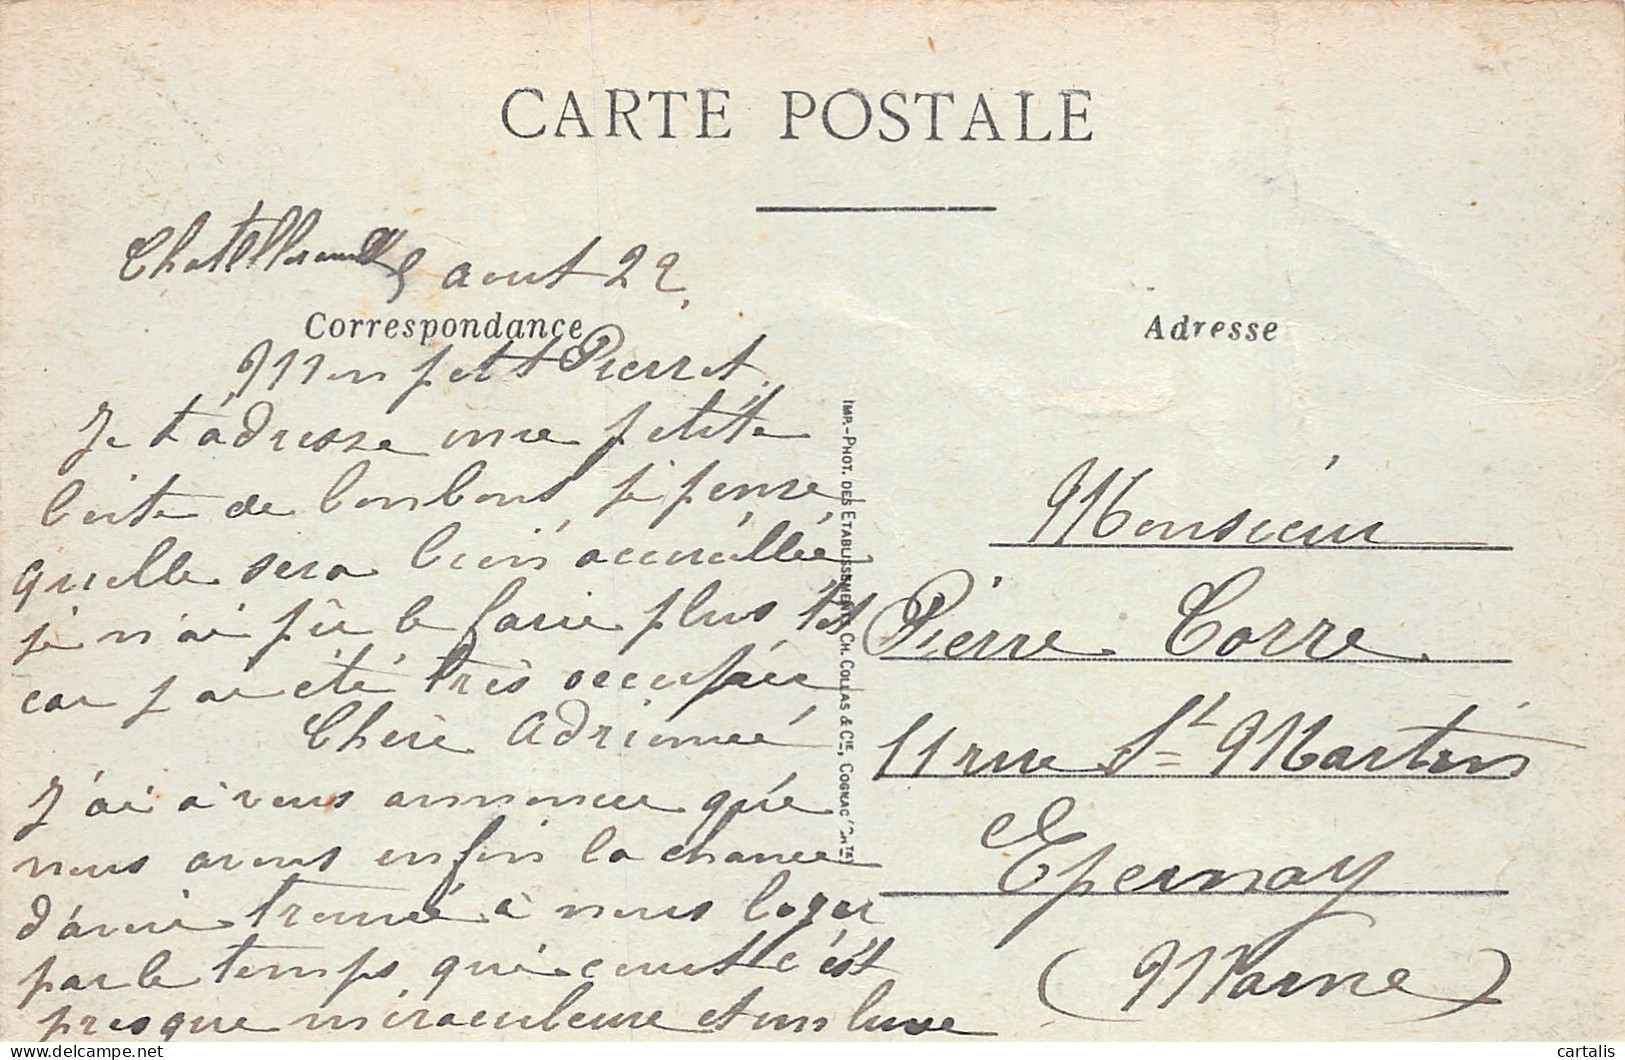 CARTE POSTALE
Chatellerault 5 aout 22
Correspondance
Mon petit Pierrot.
Je t'adresse une petite
boite de bonbons, je pense
quelle sera bien accueillie
je n'ai pu le faire plus tôt
car j'ai été très occupée
Chère Adrienne
J'ai à vous annoncer que
nous avons enfin la chance
d'avoir trouvé à nous loger
par le temps qui court c'est
presque miraculeux et un luxe
IMP.-PHOT. DES ETABLISSEMENTS CH. COLLAS & Cie, COGNAC
Adresse
Monsieur
Pierre Corre
11 rue St Martin
Epernay
(Marne)
cartalis